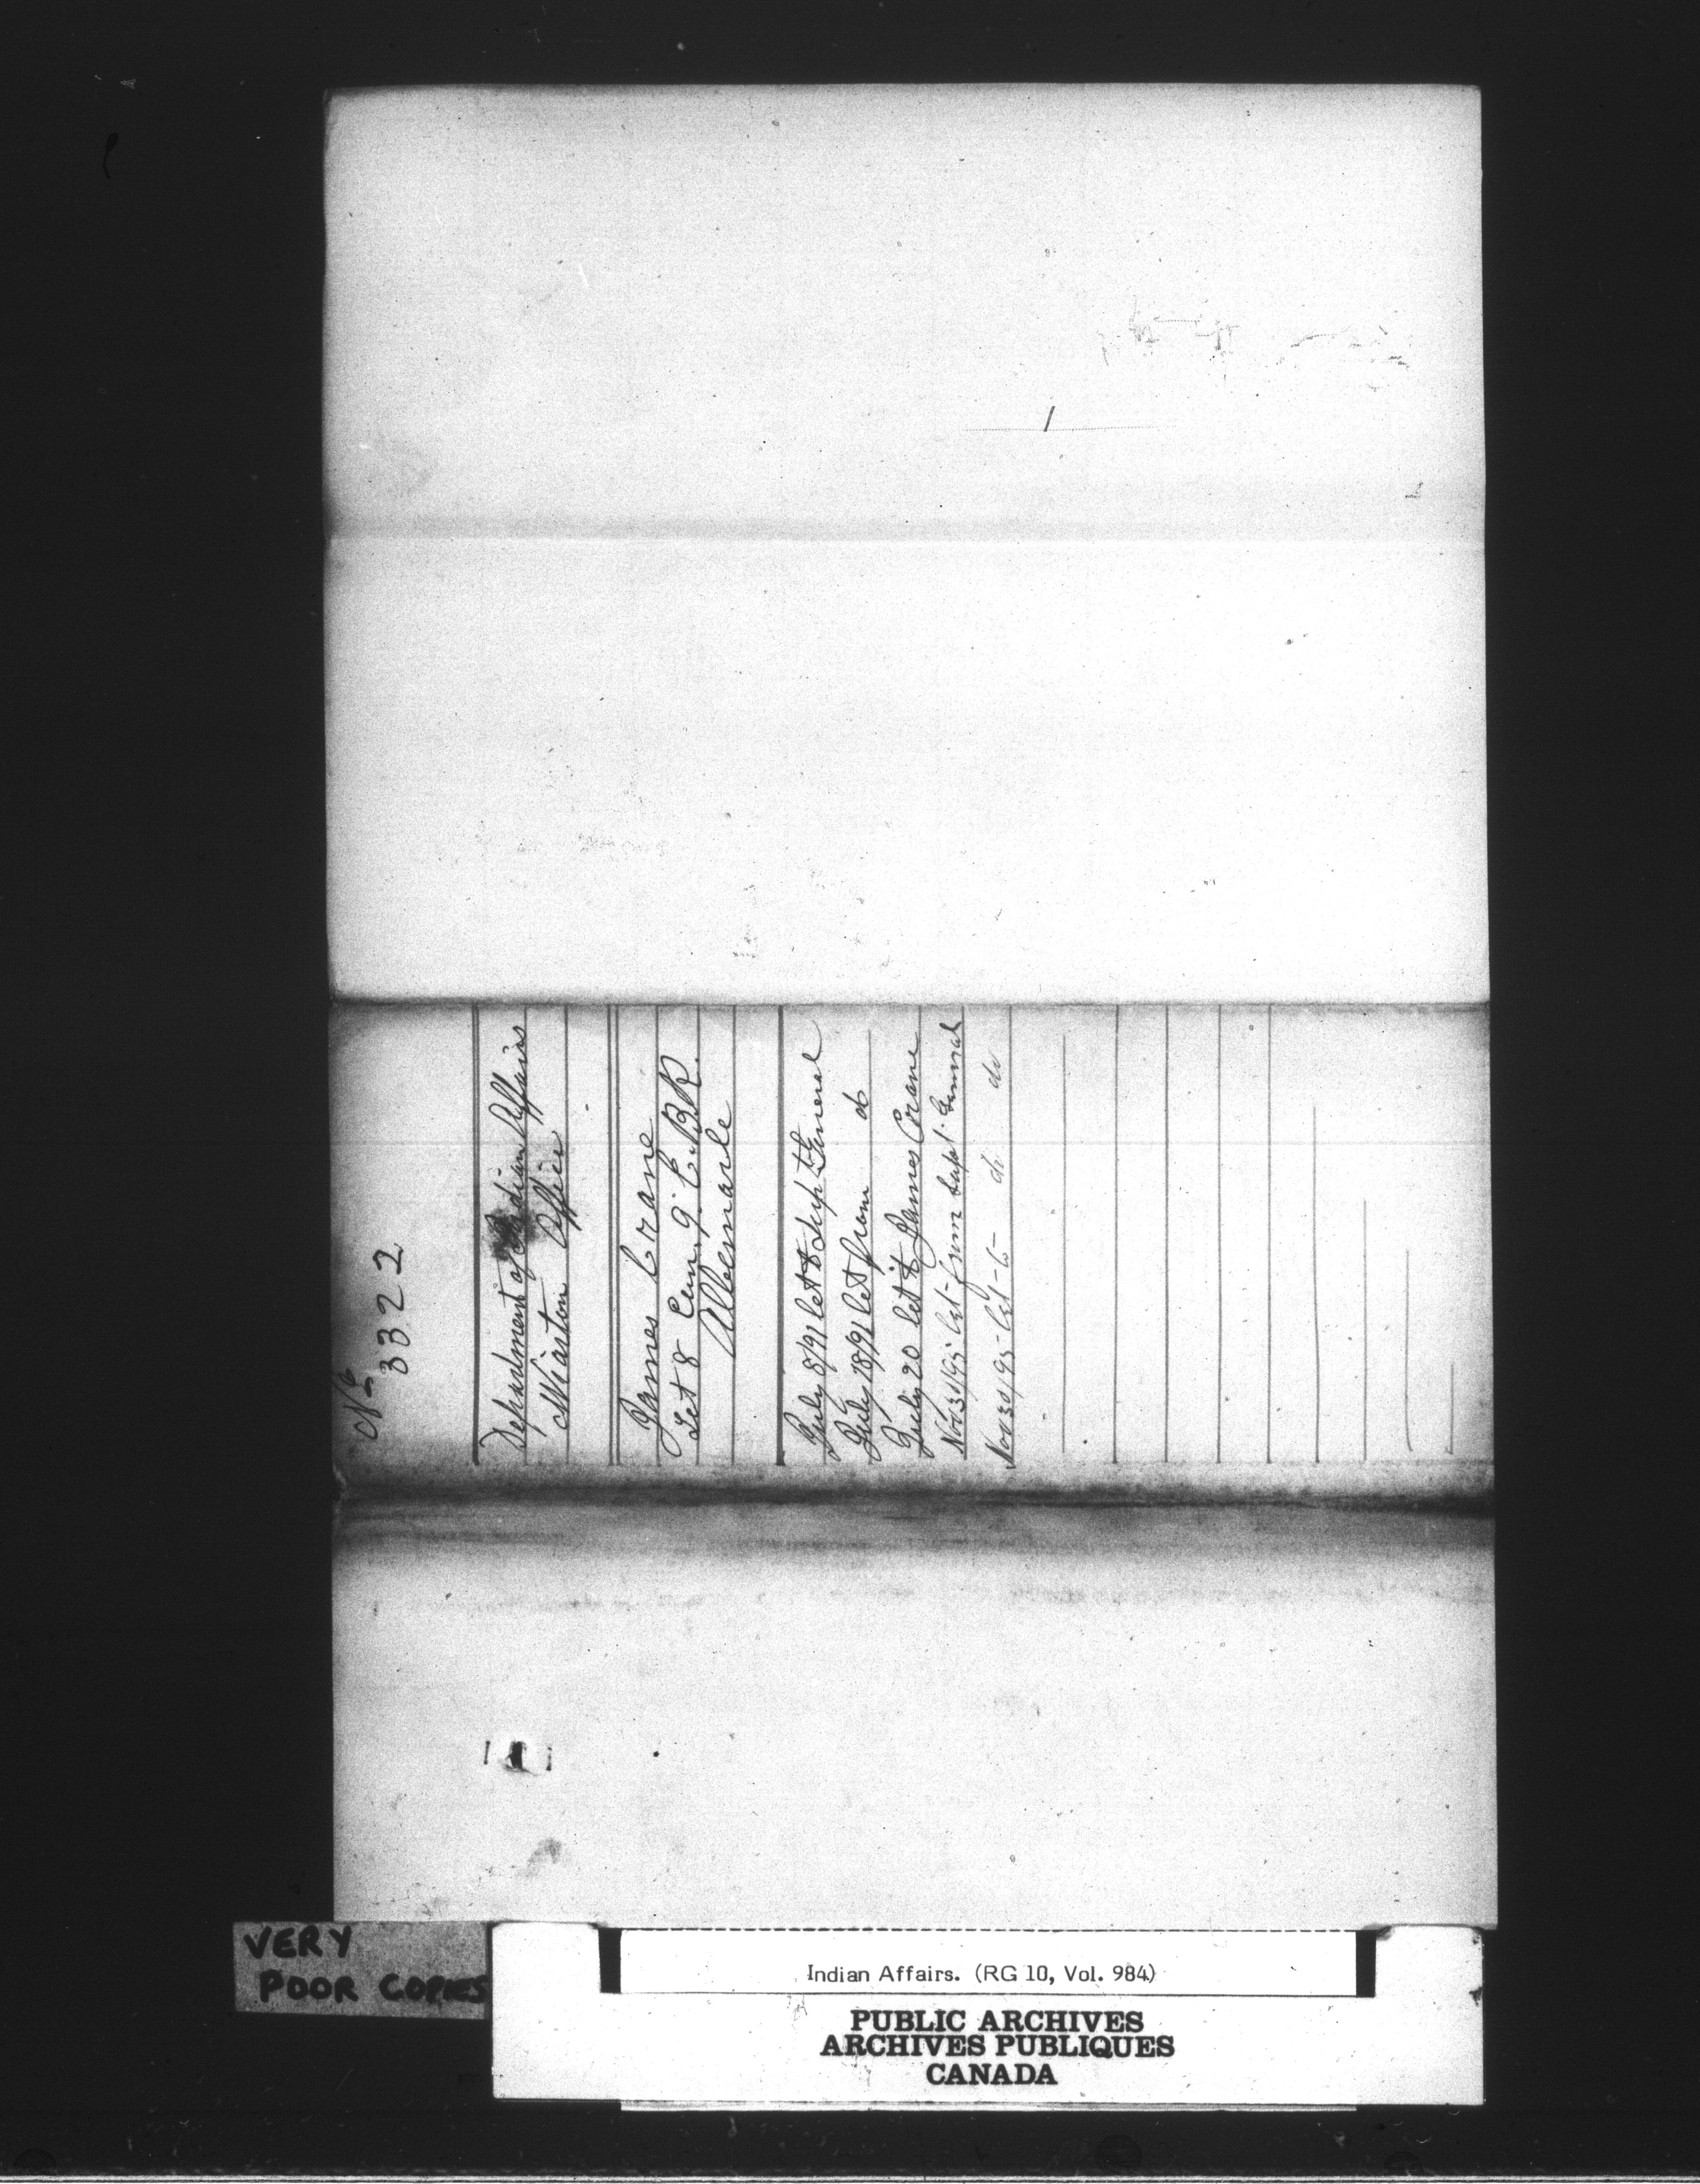 No
3322
Department of Indian Affairs
Wiarton Office
James Crane
Lot 8 Con. 9. E. B. R.
Albemarle
July 8/91 let to Supt General
July 18/91 let from do
July 20 let to James Crane
Nov 30/95 let from Supt. General
Nov 30/95 let to do do
1
VERY
POOR COPIES
Indian Affairs. (RG 10, Vol. 984)
PUBLIC ARCHIVES
ARCHIVES PUBLIQUES
CANADA